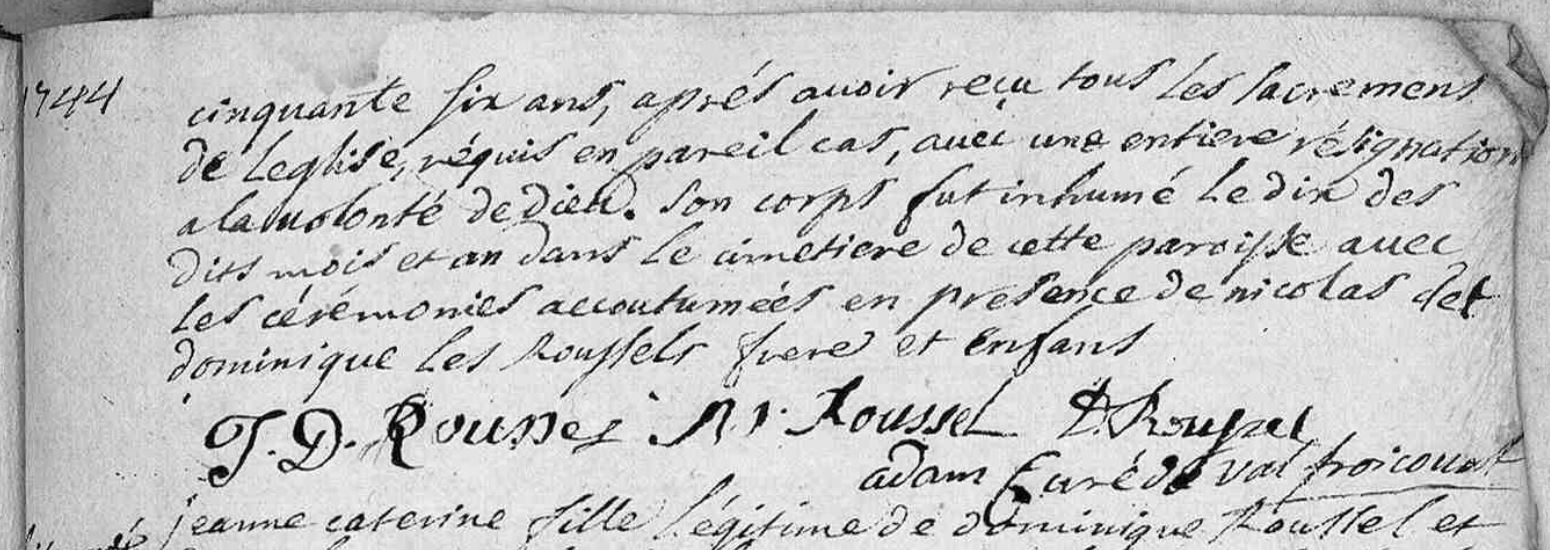 1744
cinquante six ans, aprés avoir reçu tous les sacremens
de leglise, réquis en pareil cas, avec une entiere résignation
a la volonté de dieu. son corps fut inhumé le dix des
dits mois et an dans le cimetiere de cette paroisse avec
les cérémonies accoutumées en presence de nicolas et
dominique les Roussels frere et enfans
J. D. Roussel N Roussel D. Roussel
adam Curé de val froicourt
jeanne caterine fille légitime de dominique Roussel et